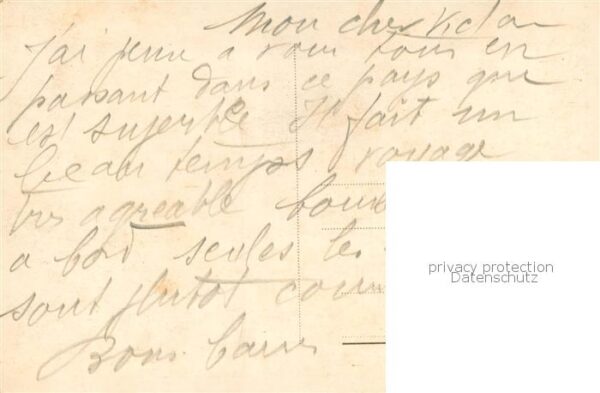 Mon cher Victor
J'ai pensé a vous tous en
passant dans ce pays que
est superbe Il fait un
beau temps voyage
très agreable
a bord seules les
sont plutot
Bons baisers
privacy protection
Datenschutz